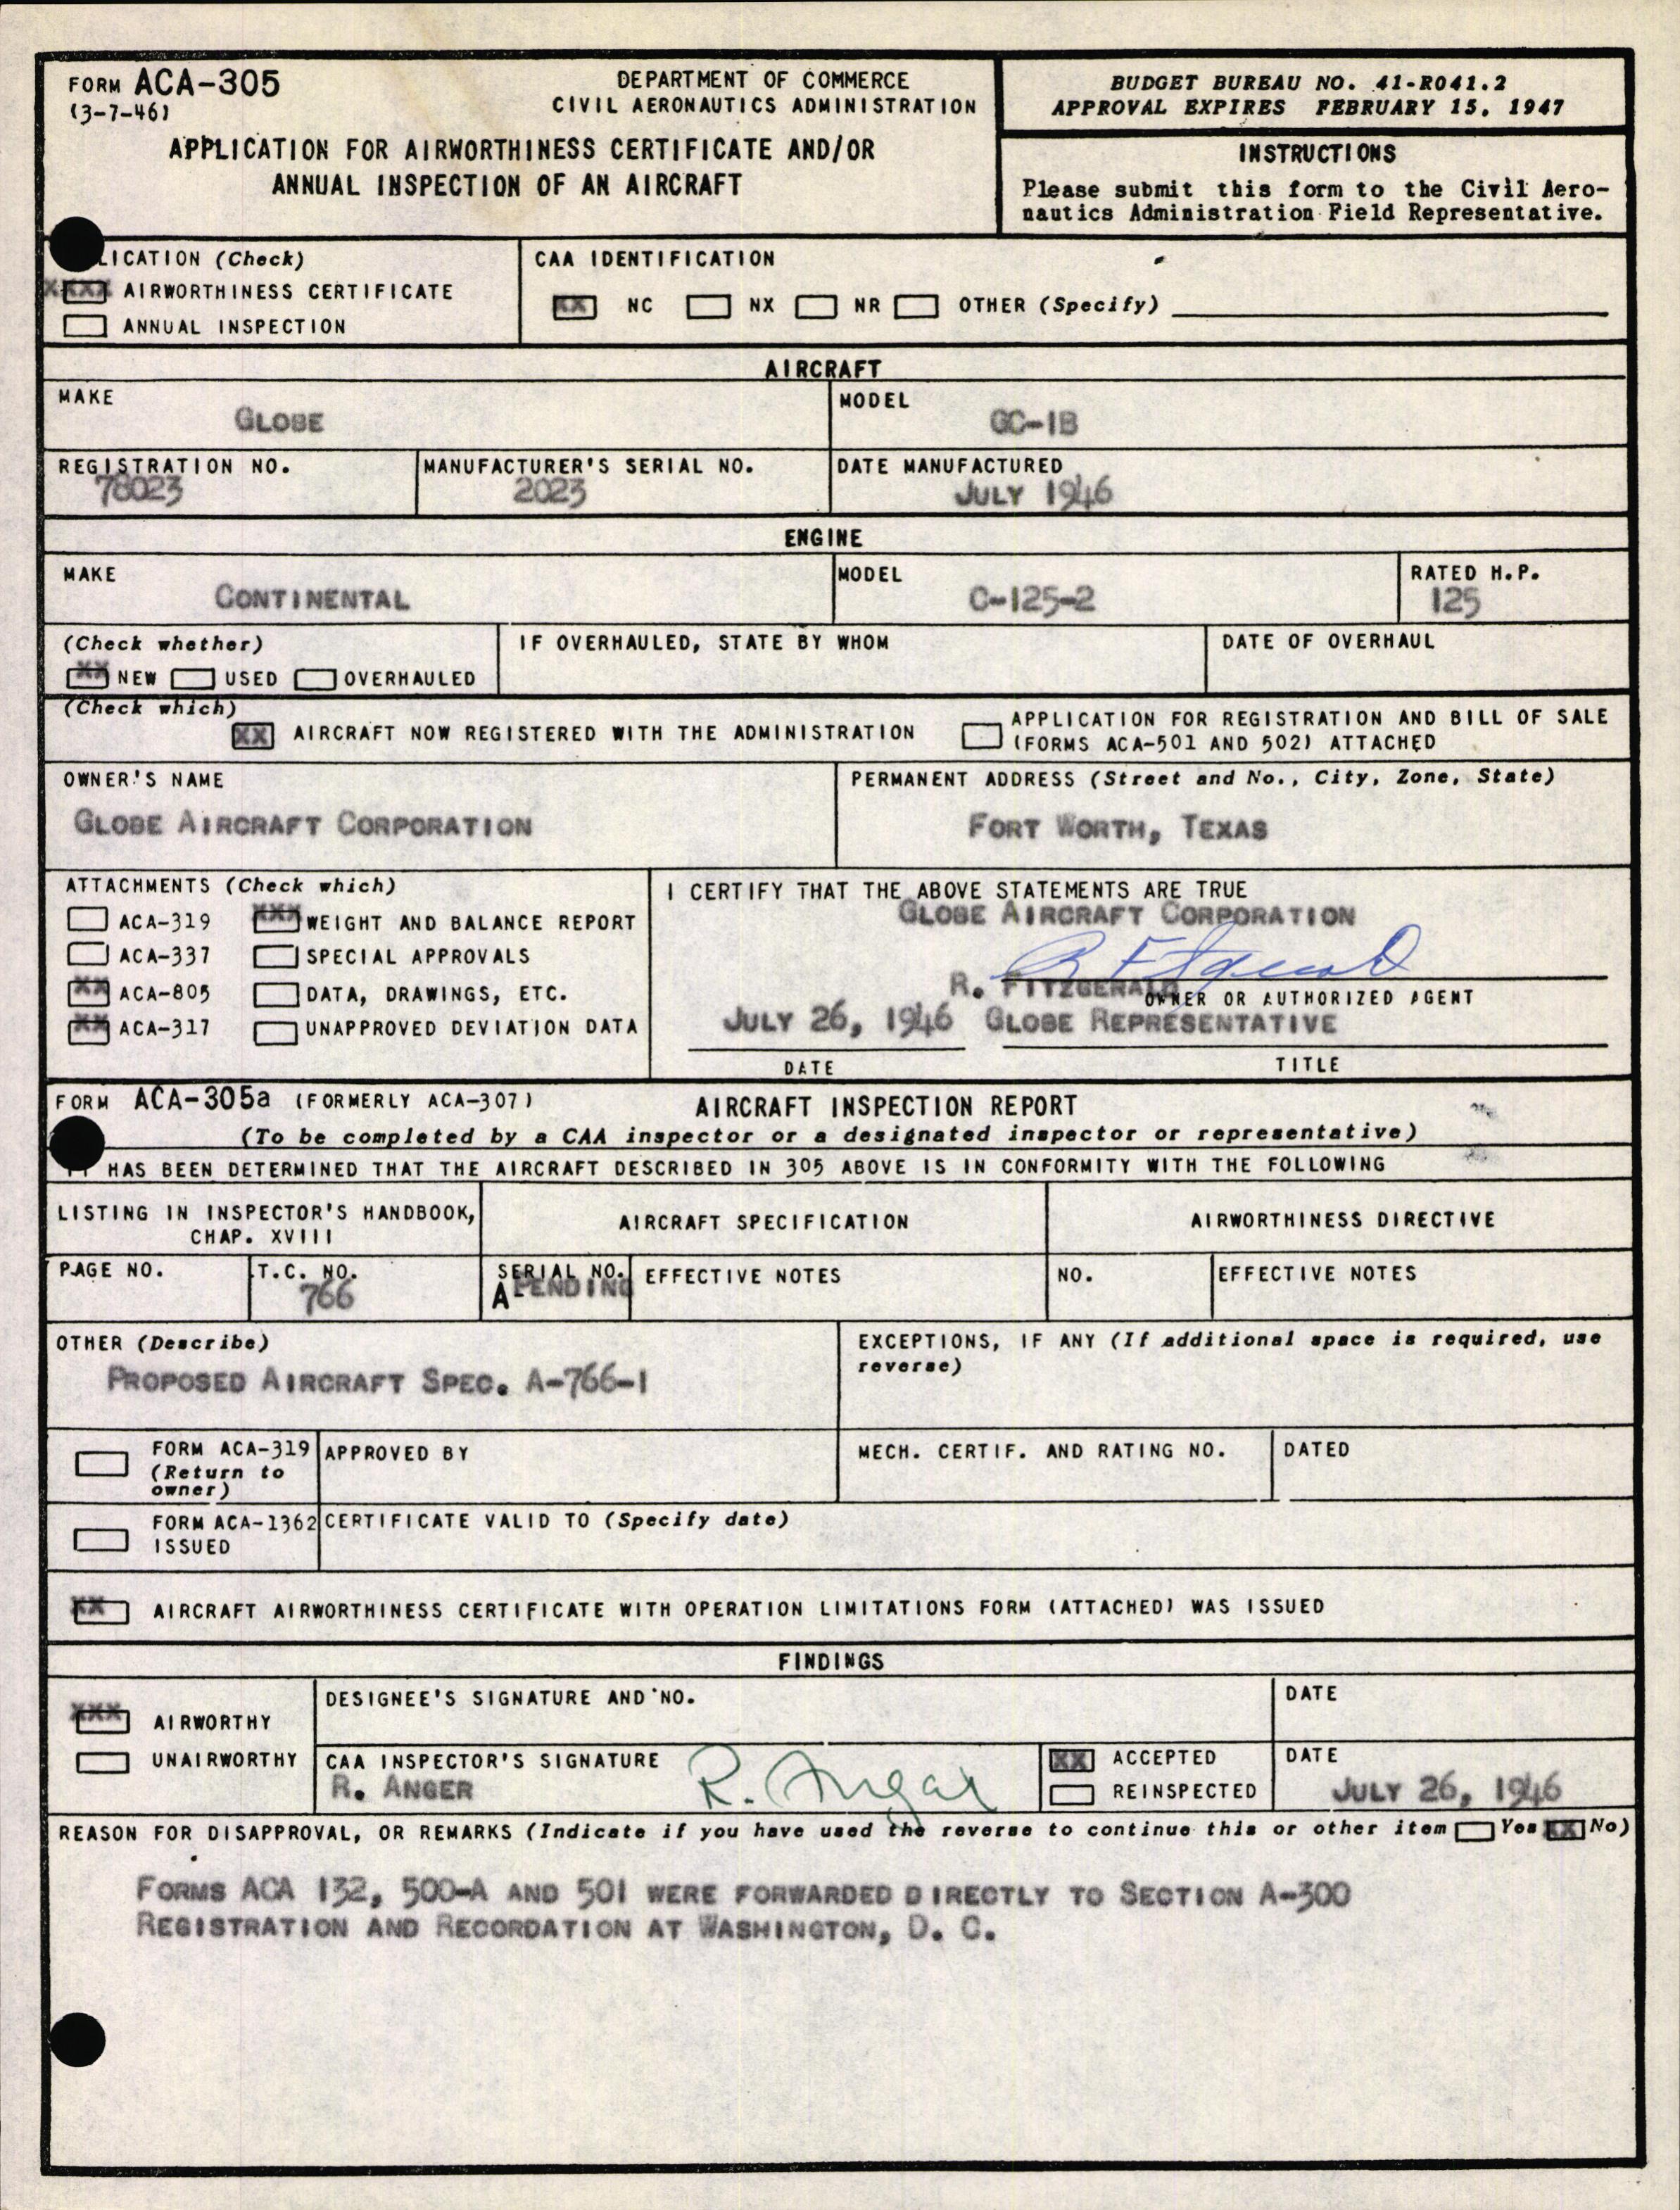 FORM ACA-305
(3-7-46)
DEPARTMENT OF COMMERCE
CIVIL AERONAUTICS ADMINISTRATION
APPLICATION FOR AIRWORTHINESS CERTIFICATE AND/OR
ANNUAL INSPECTION OF AN AIRCRAFT
BUDGET BUREAU NO. 41-R041.2
APPROVAL EXPIRES FEBRUARY 15, 1947
INSTRUCTIONS
Please submit this form to the Civil Aero-
nautics Administration Field Representative.
LICATION (Check)
XXXX AIRWORTHINESS CERTIFICATE
ANNUAL INSPECTION
CAA IDENTIFICATION
XX NC NX NR OTHER (Specify)
AIRCRAFT
MAKE
GLOBE
MODEL
GC-1B
REGISTRATION NO.
78023
MANUFACTURER'S SERIAL NO.
2023
DATE MANUFACTURED
JULY 1946
ENGINE
MAKE
CONTINENTAL
MODEL
C-125-2
RATED H.P.
125
(Check whether)
XX NEW USED OVERHAULED
IF OVERHAULED, STATE BY WHOM
DATE OF OVERHAUL
(Check which)
XX AIRCRAFT NOW REGISTERED WITH THE ADMINISTRATION
APPLICATION FOR REGISTRATION AND BILL OF SALE
(FORMS ACA-501 AND 502) ATTACHED
OWNER'S NAME
GLOBE AIRCRAFT CORPORATION
PERMANENT ADDRESS (Street and No., City, Zone, State)
FORT WORTH, TEXAS
ATTACHMENTS (Check which)
ACA-319 XXX WEIGHT AND BALANCE REPORT
ACA-337 SPECIAL APPROVALS
XX ACA-805 DATA, DRAWINGS, ETC.
XX ACA-317 UNAPPROVED DEVIATION DATA
I CERTIFY THAT THE ABOVE STATEMENTS ARE TRUE
GLOBE AIRCRAFT CORPORATION
R. FITZGERALD
OWNER OR AUTHORIZED AGENT
JULY 26, 1946 GLOBE REPRESENTATIVE
DATE TITLE
FORM ACA-305a (FORMERLY ACA-307) AIRCRAFT INSPECTION REPORT
(To be completed by a CAA inspector or a designated inspector or representative)
IT HAS BEEN DETERMINED THAT THE AIRCRAFT DESCRIBED IN 305 ABOVE IS IN CONFORMITY WITH THE FOLLOWING
LISTING IN INSPECTOR'S HANDBOOK,
CHAP. XVIII
AIRCRAFT SPECIFICATION
AIRWORTHINESS DIRECTIVE
PAGE NO.
T.C. NO.
766
SERIAL NO.
A PENDING
EFFECTIVE NOTES
NO.
EFFECTIVE NOTES
OTHER (Describe)
PROPOSED AIRCRAFT SPEC. A-766-1
EXCEPTIONS, IF ANY (If additional space is required, use
reverse)
FORM ACA-319
(Return to
owner)
APPROVED BY
MECH. CERTIF. AND RATING NO.
DATED
FORM ACA-1362
ISSUED
CERTIFICATE VALID TO (Specify date)
XX AIRCRAFT AIRWORTHINESS CERTIFICATE WITH OPERATION LIMITATIONS FORM (ATTACHED) WAS ISSUED
FINDINGS
XXX AIRWORTHY
UNAIRWORTHY
DESIGNEE'S SIGNATURE AND NO.
DATE
CAA INSPECTOR'S SIGNATURE
R. ANGER
R. Anger
XX ACCEPTED
REINSPECTED
DATE
JULY 26, 1946
REASON FOR DISAPPROVAL, OR REMARKS (Indicate if you have used the reverse to continue this or other item Yes XX No)
FORMS ACA 132, 500-A AND 501 WERE FORWARDED DIRECTLY TO SECTION A-300
REGISTRATION AND RECORDATION AT WASHINGTON, D. C.